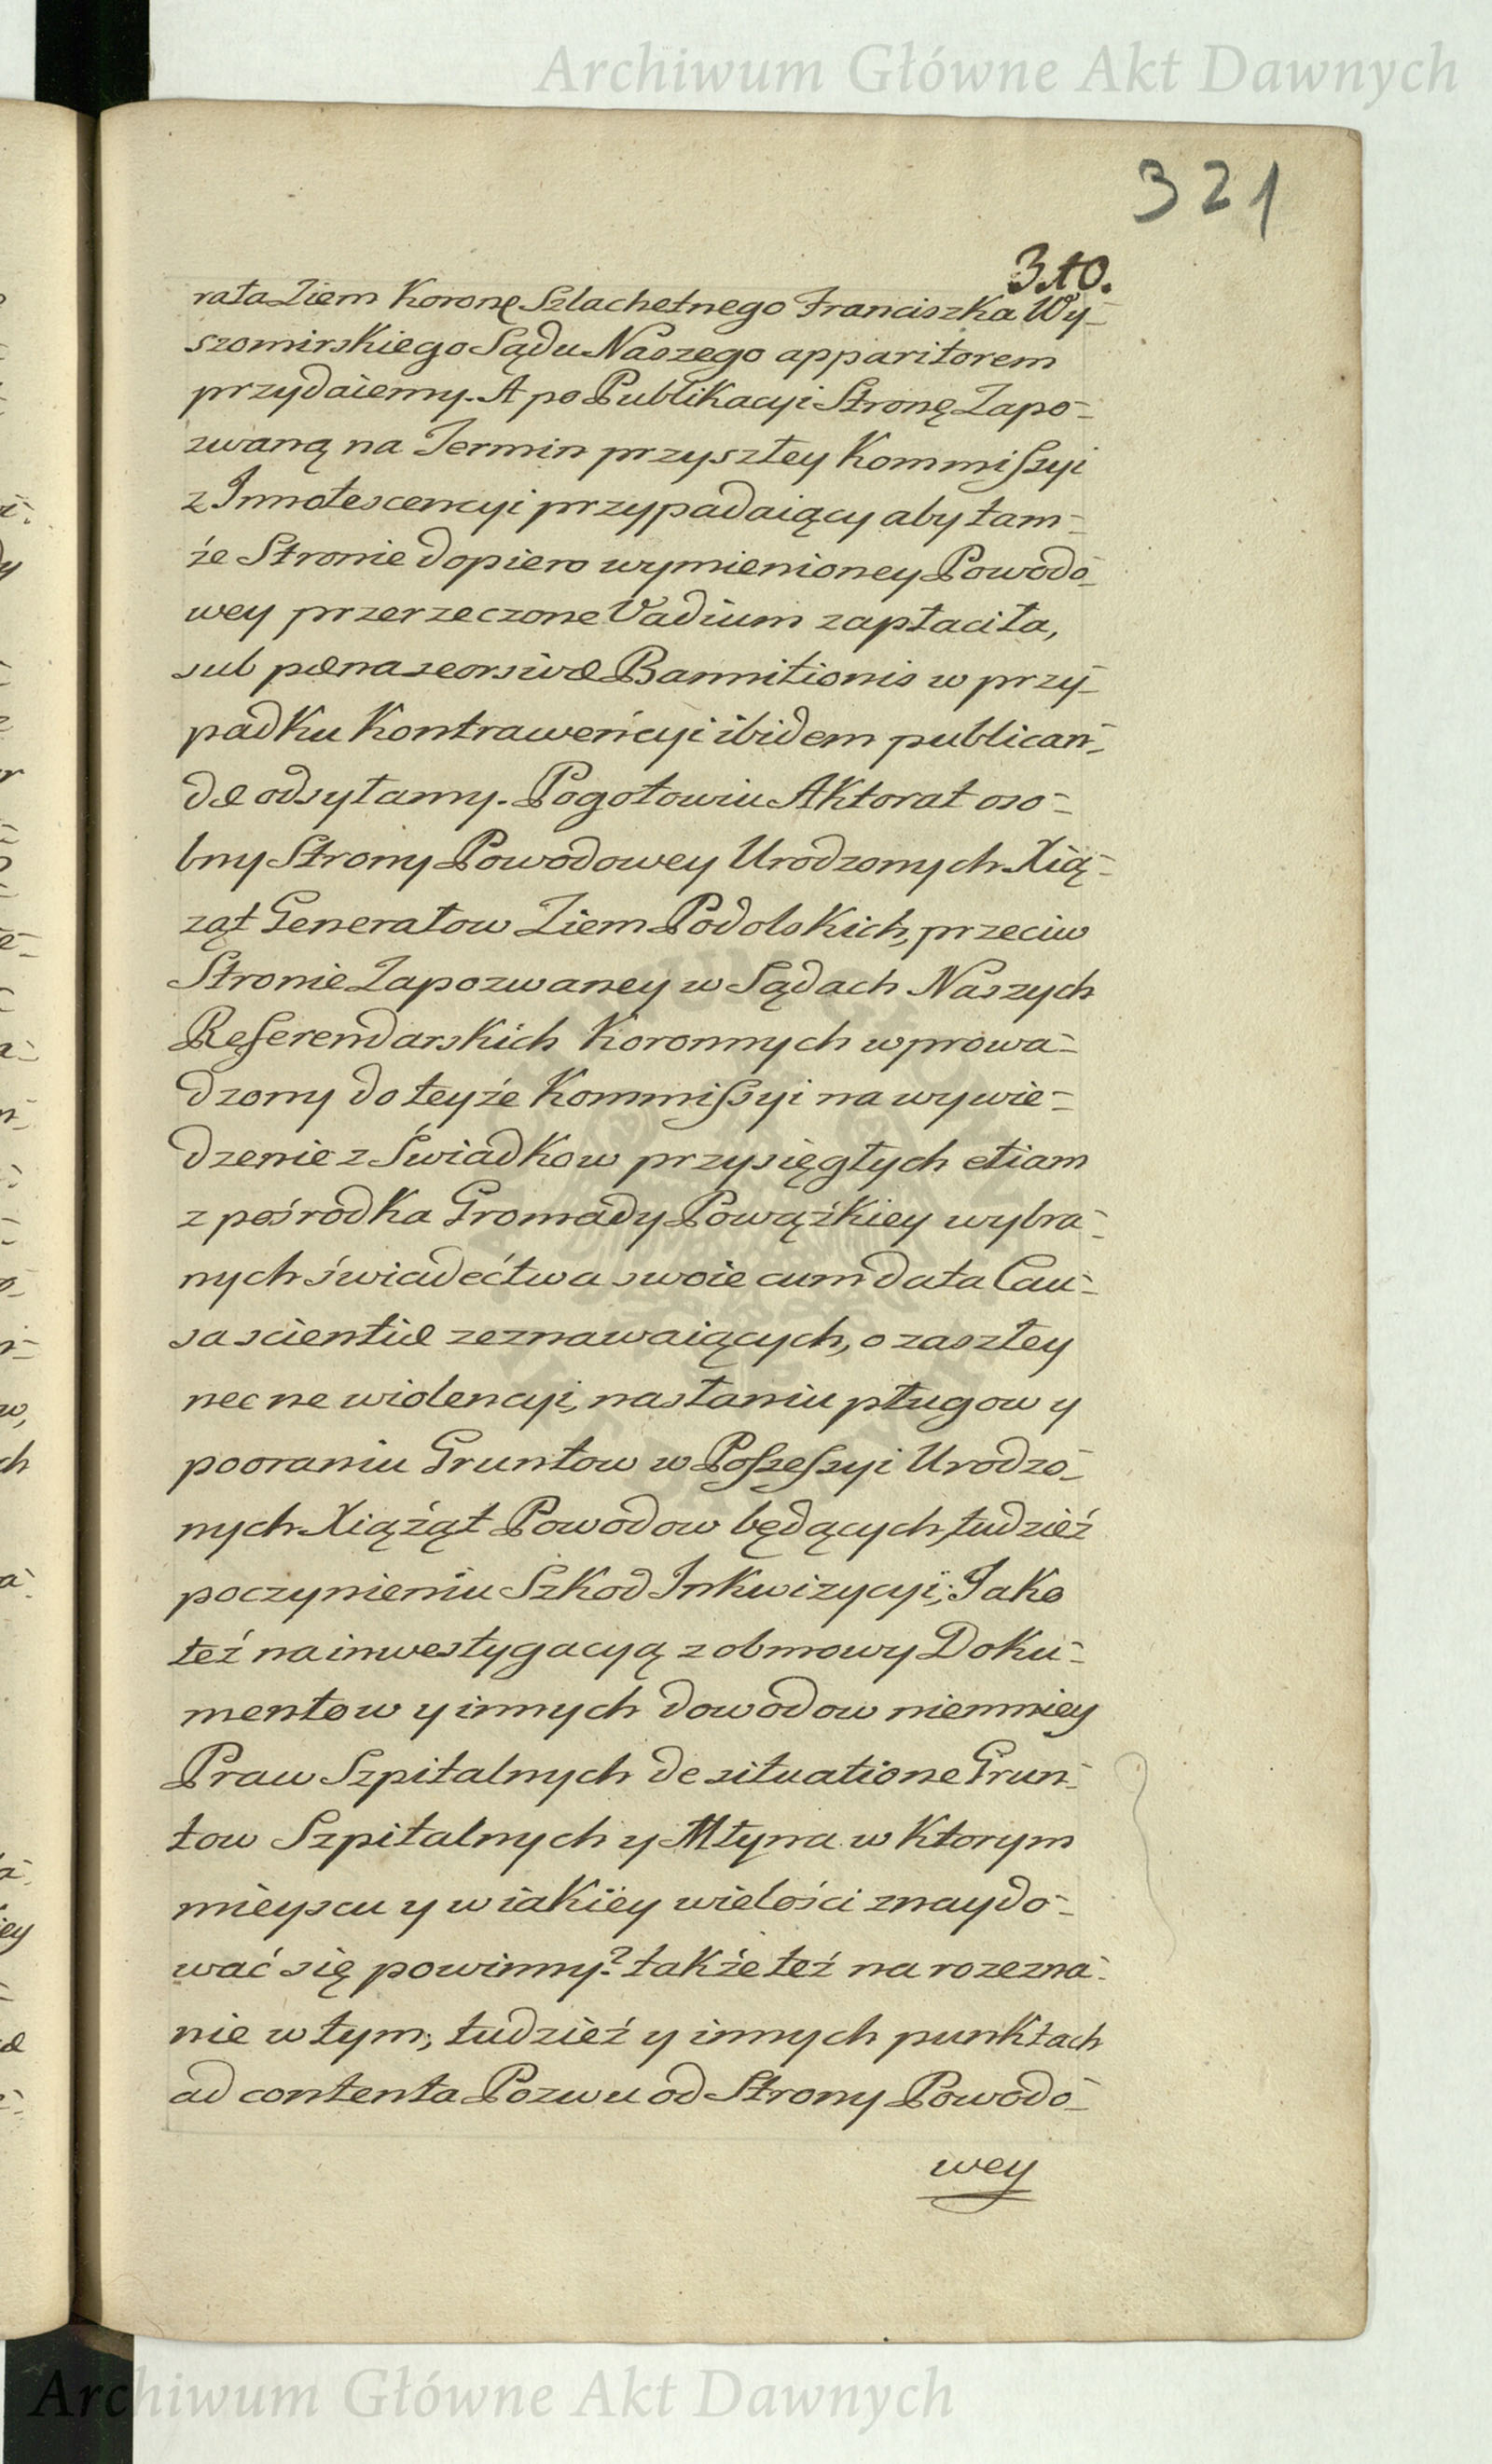 Archiwum Główne Akt Dawnych
321
310.
rata Ziem Koronę Szlachetnego Franciszka Wy-
szomirskiego Sądu Naszego apparitorem
przydaiemy. A po Publikacyi Stronę Zapo-
zwaną na Termin przyszłey Kommissyi
z Innotescencyi przypadaiący aby tam-
że Stronie dopiero wymienioney Powodo-
wey przerzeczone Vadium zapłaciła,
sub pœna seorsivæ Bannitionis w przy-
padku Kontrawencyi ibidem publican-
dæ odsyłamy. Pogotowiu Aktorat oso-
bny Strony Powodowey Urodzonych Xią-
ząt Generałow Ziem Podolskich, przeciw
Stronie Zapozwaney w Sądach Naszych
Referendarskich Koronnych wprowa-
dzony do teyże Kommissyi na wywie-
dzenie z Swiadkow przysięgłych etiam
z pośrodka Gromady Powązkiey wybra-
nych świadectwa swoie cum data Cau-
sa scientiæ zeznawaiących, o zaszłey
nec ne wiolencyi, nasłaniu pługow y
pooraniu Gruntow w Possessyi Urodzo-
nych Xiążąt Powodow będących, tudzież
poczynieniu Szkod Inkwizycyi; Jako
też na inwestygacyą z obmowy Doku-
mentow y innych dowodow niemniey
Praw Szpitalnych de situatione Grun-
tow Szpitalnych y Młyna w Ktorym
mieyscu y w iakiey wielości znaydo-
wać się powinny? także też na rozezna-
nie w tym, tudzież y innych punktach
ad contenta Pozwu od Strony Powodo-
wey
Archiwum Główne Akt Dawnych